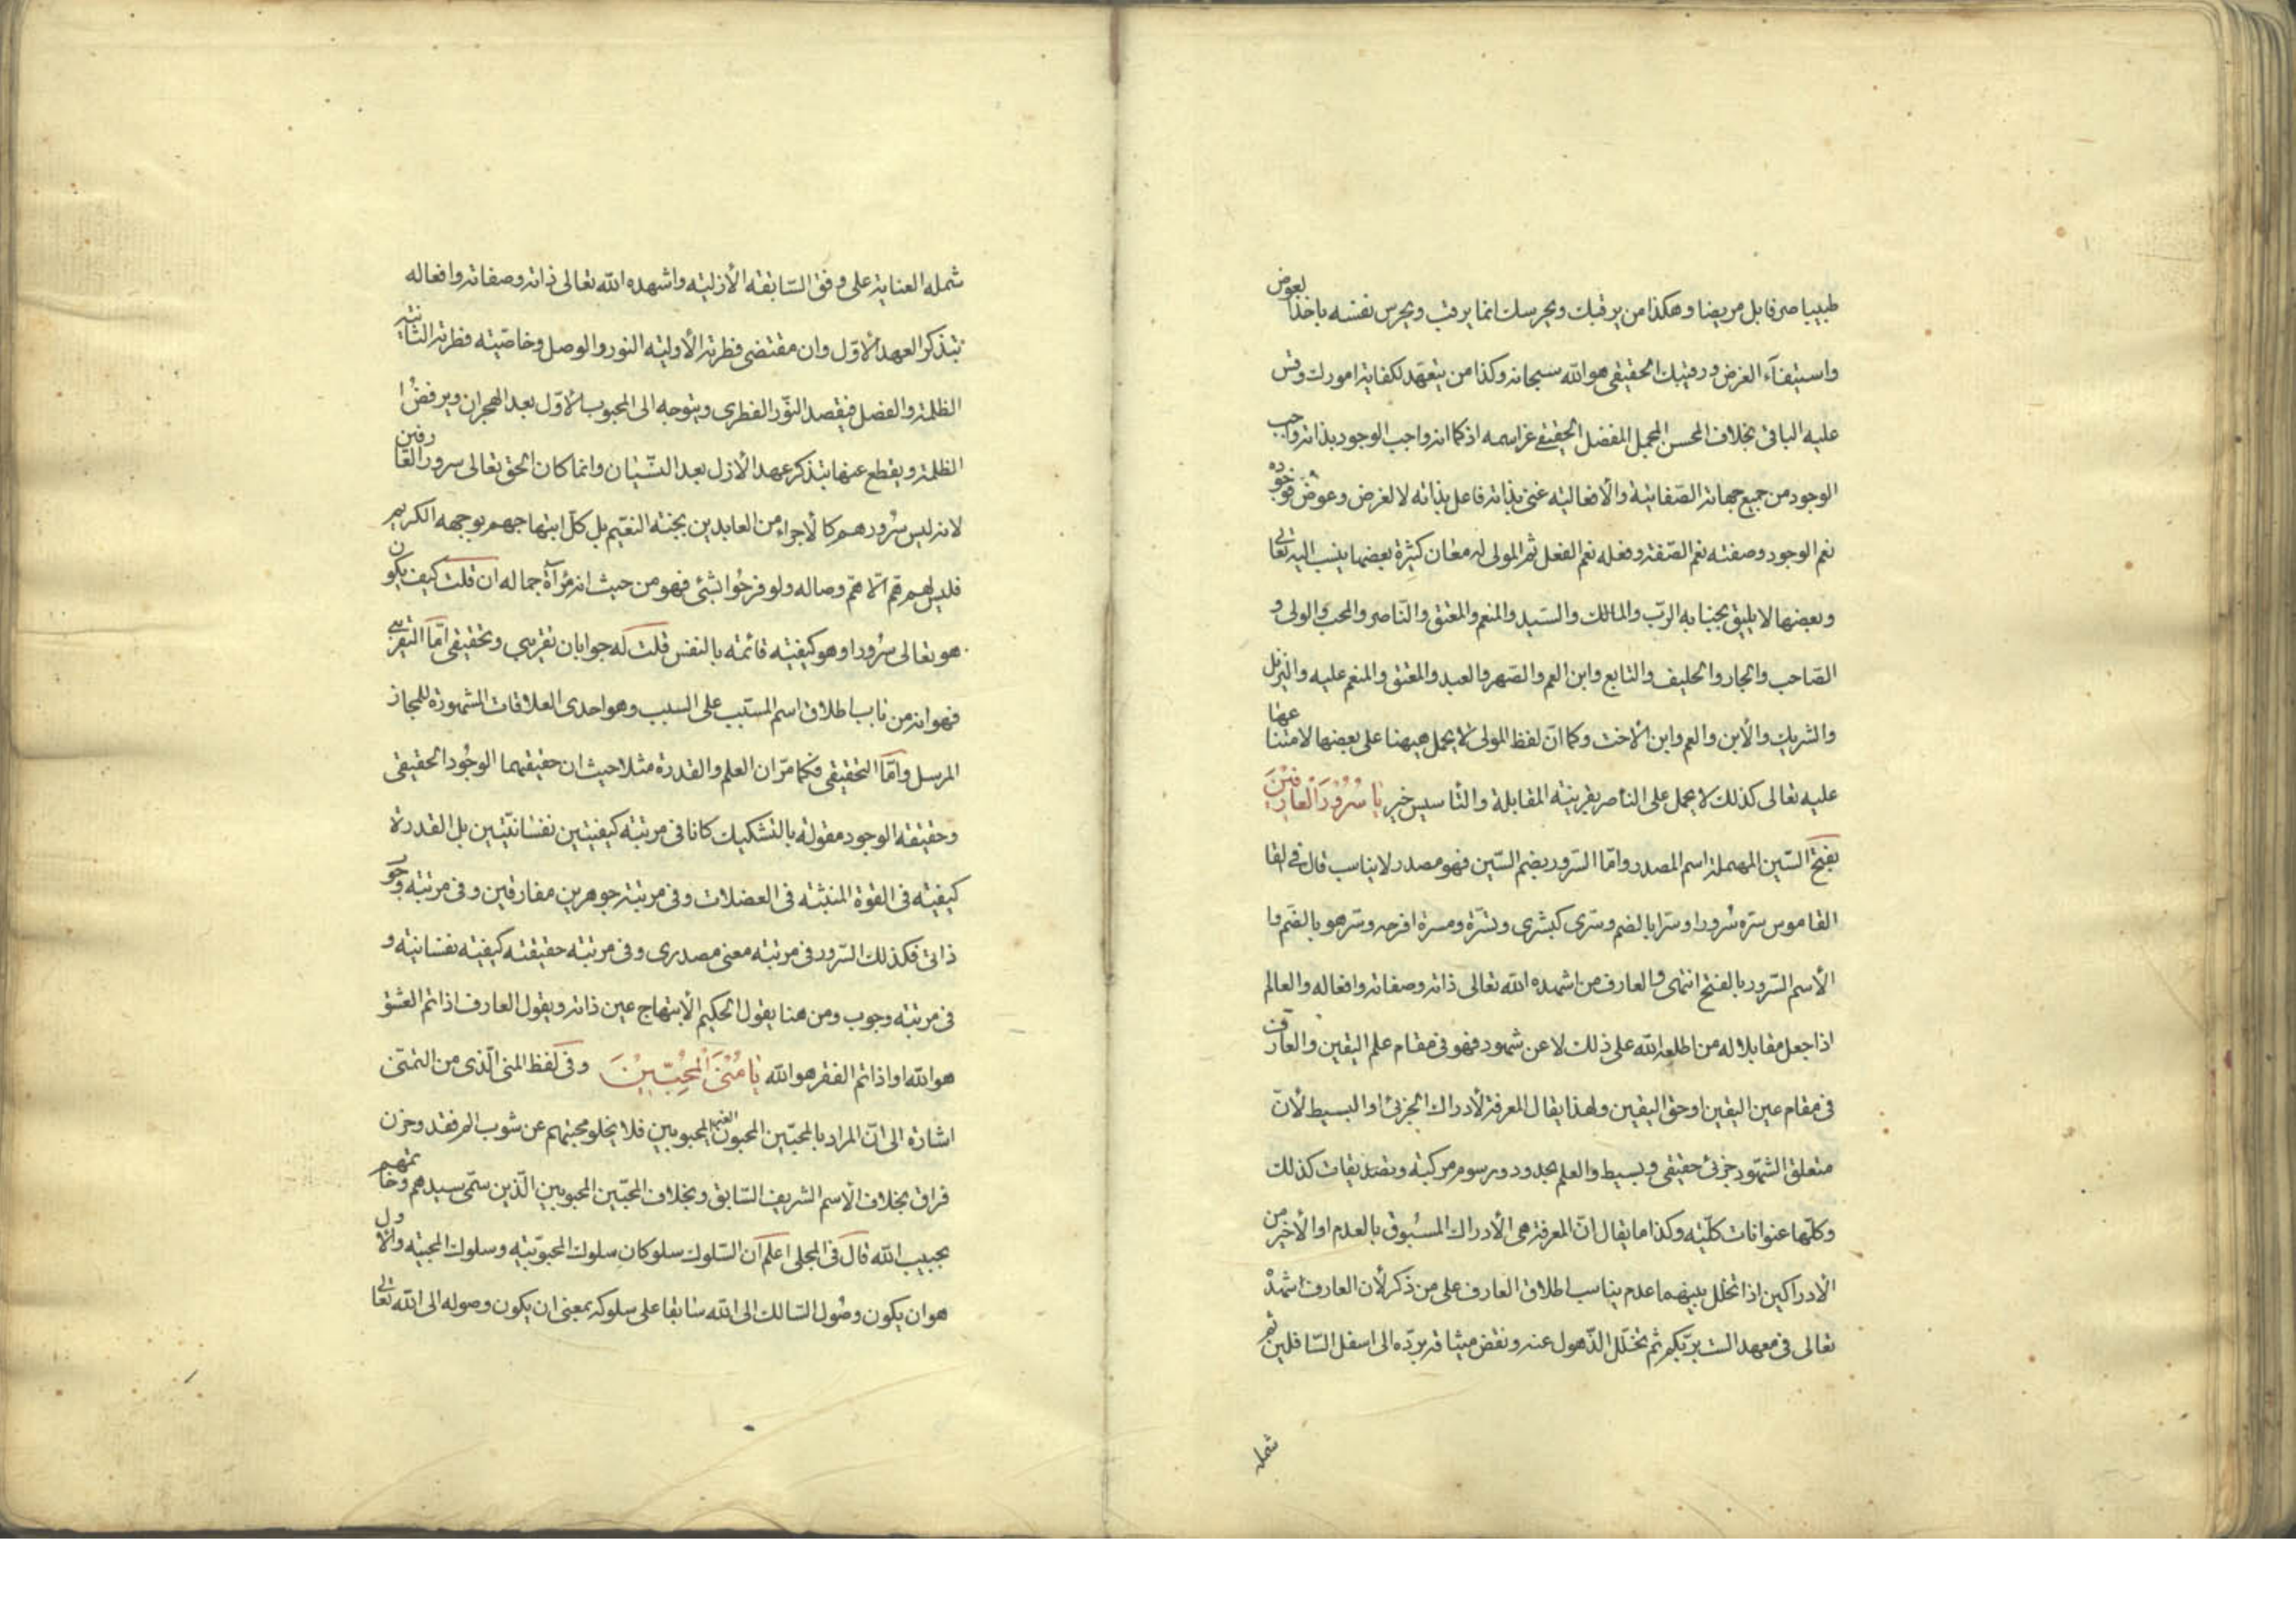 طبيبا صرفا بل مريضا وهكذا من يرقبك ويحرسك انما يرقب ويحرس نفسه باخذ العوض
واستيفآء الغرض ورقيبك الحقيقى هو الله سبحانه وكذا من يتعهد لكفاية امورك وقس
عليه الباقى بخلاف المحسن المجمل المفضل الحقيقى عز اسمه اذ كما انه واجب الوجود بذاته واجب
الوجود من جميع جهاته الصفاتية والافعالية غنى بذاته فاعل بذاته لا لغرض وعوض فوجوده
نعم الوجود وصفته نعم الصّفة وفعله نعم الفعل ثم المولى له معان كثيرة بعضها ينسب اليه تعالى
وبعضها لا يليق بجنابه الربّ والمالك والسّيد والمنعم والمعتق والنّاصر والمحب والولى و
الصّاحب والجار والحليف والتابع وابن العم والصّهر والعبد والمعتق والمنعم عليه والنزيل
والشريك والأبن والعم وابن الاخت وكما انّ لفظ المولى لا يحمل هيهنا على بعضها لامتناعها
عليه تعالى كذلك لا يحمل على الناصر بقرينة المقابلة والتأسيس خير يَا سُرُوْرَ الْعَارِفِيْنَ
بفتح السّين المهملة اسم المصدر وامّا السّرور بضم السّين فهو مصدر لا يناسب قال فى القا
القاموس سرّه سُرورا وسرّا بالضم وسرى كبشرى وتسرّة ومسرة افرحه وسر هو بالضّم وا
الأسم السّرور بالفتح انتهى والعارف من اشهده الله تعالى ذاته وصفاته وافعاله والعالم
اذا جعل مقابلا له من اطلعه الله على ذلك لا عن شهود فهو فى مقام علم اليقين والعارف
فى مقام عين اليقين او حق اليقين ولهذا يقال المعرفة لادراك الجزئى او البسيط لأنّ
متعلق الشّهود جزئى حقيقى وبسيط والعلم بحدود ورسوم مركبة وتصديقات كذلك
وكلّها عنوانات كلّية وكذا ما يقال انّ المعرفة هى الأدراك المسبُوق بالعدم او الأخير من
الادراكين اذا تخلل بينهما عدم يناسب اطلاق العارف على من ذكر لأن العارف اشهده
تعالى فى معهد الست بربّكم ثم تخلّل الذّهول عنه ونقض ميثاقه بردّه الى اسفل السّافلين ثم
شمله
شمله العناية على وفق السّابقة الأزلية واشهده الله تعالى ذاته وصفاته وافعاله
بتذكر العهد الاوّل وان مقتضى فطرته الأولية النور والوصل وخاصّية فطرته الثانية
الظلمة والفصل فيقصد النّور الفطرى ويتوجه الى المحبوب الاوّل بعد الهجران ويرفض ا
الظلمة ويقطع عنها بتذكر عهد الازل بعد النّسيان وانما كان الحق تعالى سرور العارفين
لانه ليس سُرورهم كالأجراء من العابدين بجنة النعّيم بل كلّ ابتهاجهم بوجهه الكريم
فليس لهم همّ الّا همّ وصاله ولو فرحُوا بشئ فهو من حيث انه مرآة جماله ان قلت كيف يكون
هو تعالى سُرورا وهو كيفية قائمة بالنفس قلت له جوابان تقريبى وتحقيقى امّا التقريبى
فهو انه من باب اطلاق اسم المسبّب على السبب وهو احدى العلاقات المشهورة للمجاز
المرسل وامّا التحقيقى فكما مرّ ان العلم والقدرة مثلا حيث ان حقيقتهما الوجُود الحقيقى
وحقيقة الوجود مقولة بالتشكيك كانا فى مرتبة كيفيتين نفسانيّتين بل القدرة
كيفية فى القوة المنبثة فى العضلات وفى مرتبة جوهرين مفارقين وفى مرتبة وجوب
ذاتى فكذلك السّرور فى مرتبة معنى مصدرى وفى مرتبة حقيقته كيفية نفسانية و
فى مرتبة وجوب ومن هنا يقول الحكيم الأبتهاج عين ذاته ويقول العارف اذا تم العشق
هو الله او اذا تم الفقر هو الله يَا مُنَى الْمُحِبّيْنَ وفى لفظ المنى الّذى من التمنّى
اشارة الى انّ المراد بالمحبّين المحبون الغير المحبوبين فلا يخلو محبتهم عن شوب الم فقد وحزن
فراق بخلاف الأسم الشريف السّابق وبخلاف المحبّين المحبوبين الّذين سمّى سيدهم وخاتمهم
بحبيب الله قال فى المجلى اعلم ان السّلوك سلوكان سلوك المحبوّبية وسلوك المحبية والاول
هو ان يكون وصُول السّالك الى الله سابقا على سلوكه بمعنى ان يكون وصوله الى الله تعالى